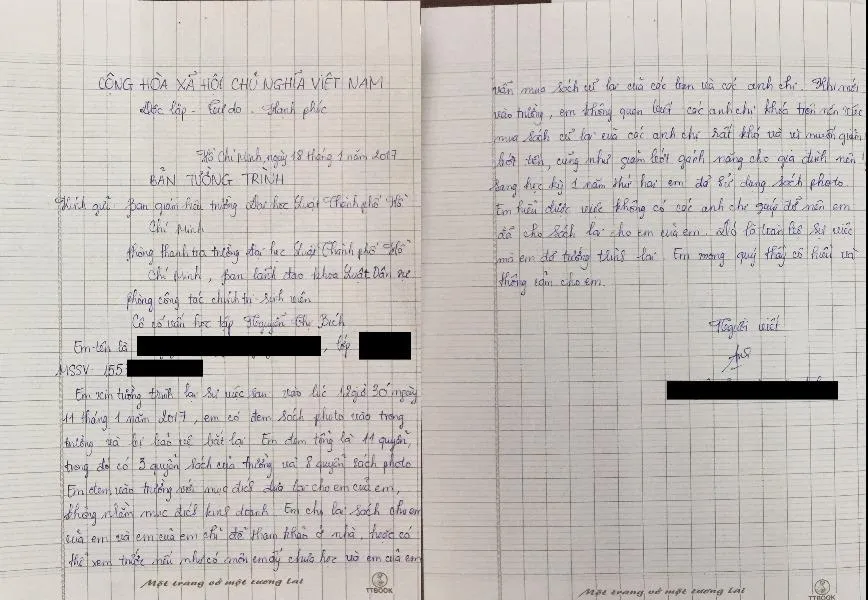 CỘNG HÒA XÃ HỘI CHỦ NGHĨA VIỆT NAM
Độc lập - Tự do - Hạnh phúc
Hồ Chí Minh, ngày 18 tháng 1 năm 2017
BẢN TƯỜNG TRÌNH
Kính gửi: Ban giám hiệu trường Đại học Luật Thành phố Hồ
Chí Minh
Phòng thanh tra trường Đại học Luật Thành phố Hồ
Chí Minh, Ban lãnh đạo khoa Luật Dân sự
Phòng công tác chính trị sinh viên
Cô cố vấn học tập Nguyễn Thị Bích
Em tên là , lớp
MSSV: 155
Em xin tường trình lại sự việc sau: vào lúc 12 giờ 30 ngày
11 tháng 1 năm 2017, em có đem sách photo vào trong
trường và bị bảo vệ bắt lại. Em đem tổng là 11 quyển,
trong đó có 3 quyển sách của trường và 8 quyển sách photo
Em đem vào trường với mục đích đưa lại cho em của em,
không nhằm mục đích kinh doanh. Em cho lại sách cho em
của em và em của em chỉ để tham khảo ở nhà, hoặc có
thể xem trước nếu như có môn em ấy chưa học và em của em
Một trang vở một tương lai
TTBOOK
vẫn mua sách cũ lại của các bạn và các anh chị. Khi mới
vào trường, em không quen biết các anh chị khóa trên nên việc
mua sách cũ lại của các anh chị rất khó và vì muốn giảm
bớt tiền, cũng như giảm bớt gánh nặng cho gia đình nên
sang học kỳ 1 năm thứ hai em đã sử dụng sách photo.
Em hiểu được việc không có các anh chị giúp đỡ nên em
đã cho sách lại cho em của em. Đó là toàn bộ sự việc
mà em đã tường trình lại. Em mong quý thầy cô hiểu và
thông cảm cho em.
Người viết
Một trang vở một tương lai
TTBOOK